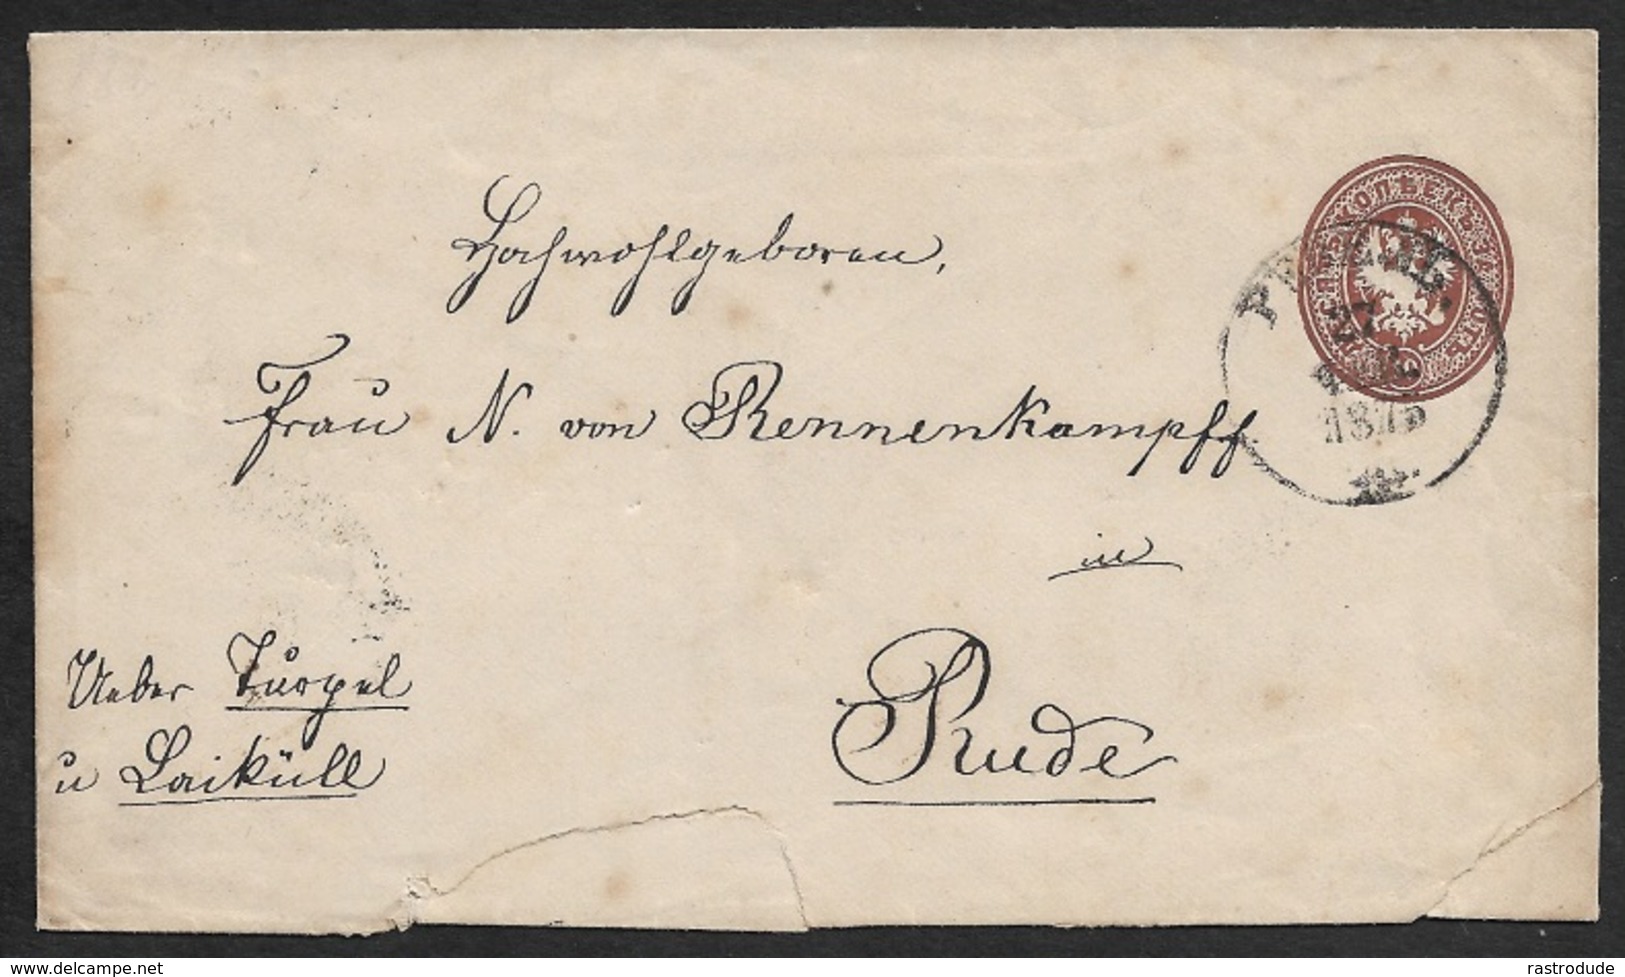 Hochwohlgeboren,
Frau N. von Rennenkampff
in
Rude
Ueber Turpel
u Laiküll
КОПѢЕКЪ
27
1875
delcampe.net
rastrodude